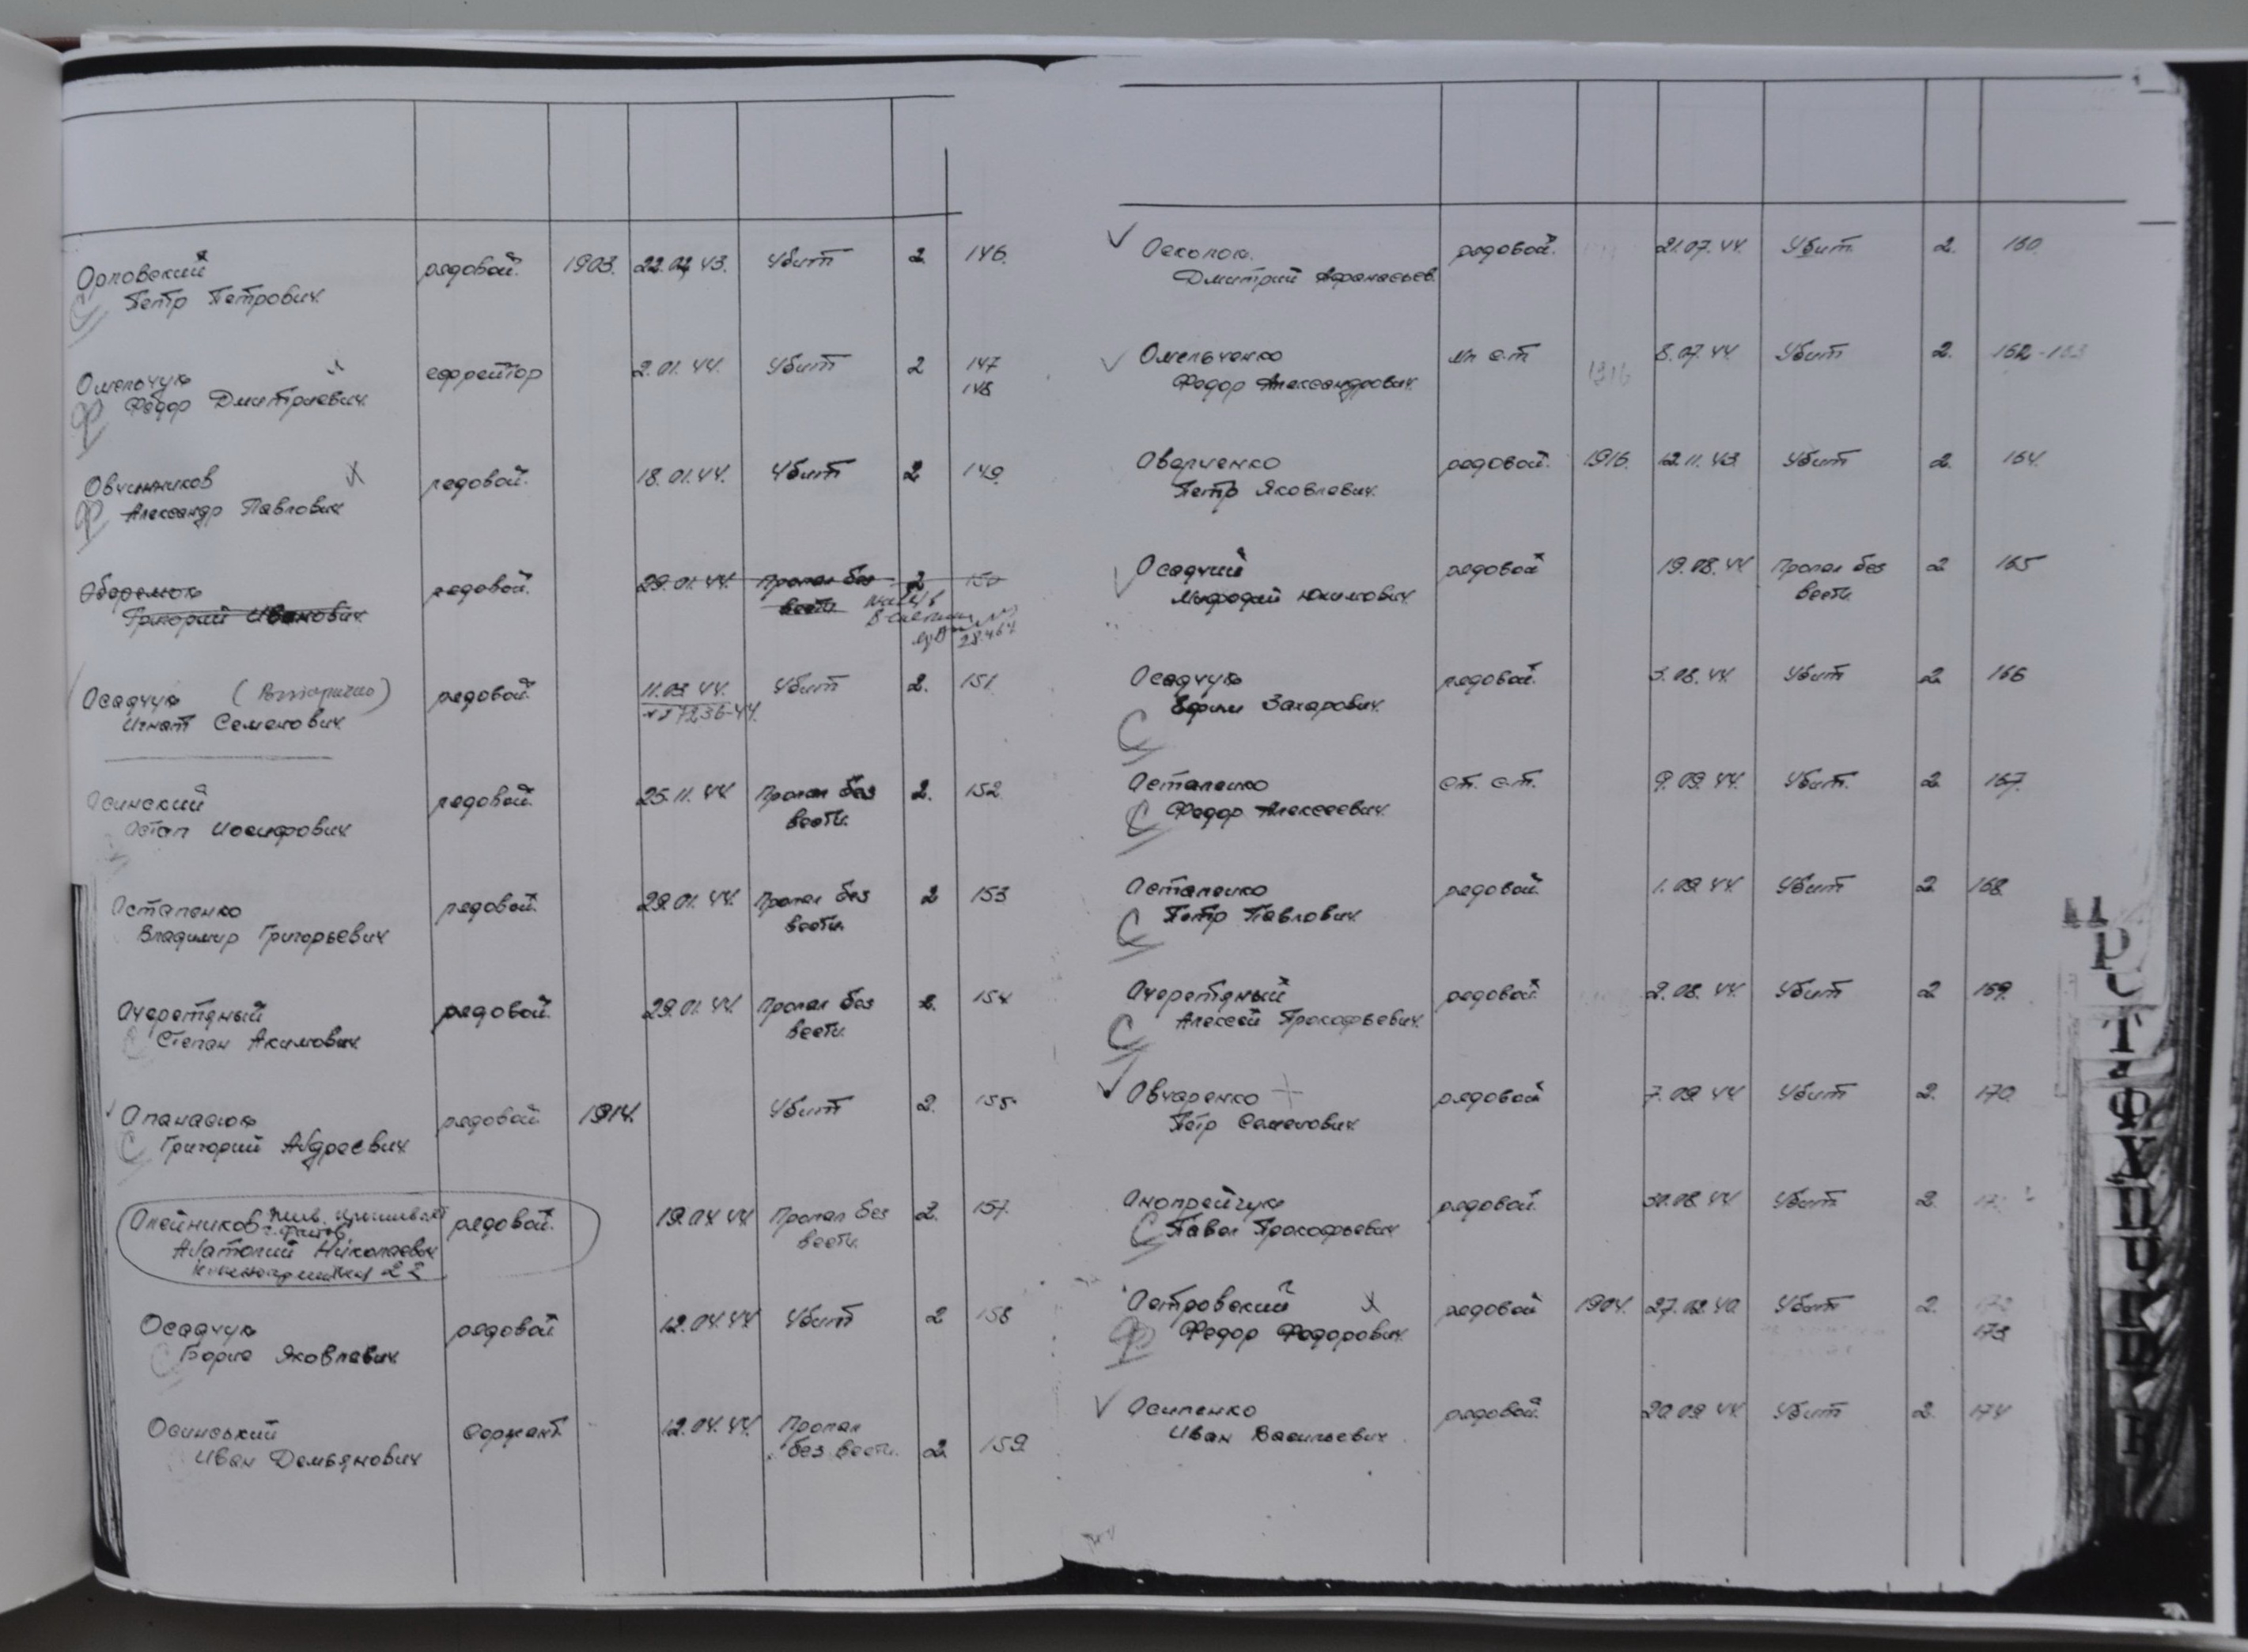 Орловский рядовой. 1903. 22.02.43. Убит 2. 146.
Петр Петрович.
Омельчук ефрейтор 2.01.44. Убит 2 147
Федор Дмитриевич. 148
Овчинников рядовой. 18.01.44. Убит 2 149.
Александр Павлович
Оберемок рядовой. 29.01.44. Пропал без 2 150
Григорий Иванович. вести
28.464
Осадчук (Вторично) рядовой. 11.03.44. Убит 2. 151.
Игнат Семенович. 7236-44.
Осинский рядовой. 25.11.44 Пропал без 2. 152.
Остап Иосифович вести.
Остапенко рядовой. 29.01.44. Пропал без 2 153
Владимир Григорьевич вести
Очеретяный рядовой. 29.01.44. Пропал без 2. 154
Степан Акимович. вести.
Опанасюк рядовой 1914. Убит 2. 155.
Григорий Андреевич
Олейников рядовой. 19.04.44 Пропал без 2. 157.
Анатолий Николаевич вести.
22
Осадчук рядовой 12.04.44 Убит 2 158
Борис Яковлевич.
Осинський Сержант. 12.04.44. Пропал
Иван Демьянович без вести. 2 159.
Осколок. рядовой. 21.07.44. Убит. 2. 160.
Дмитрий Афанасьев.
Омельченко мл с.т 8.07.44. Убит 2. 162-163
Федор Александрович. 1916
Оверченко рядовой. 1916. 12.11.43. Убит 2. 164.
Петр Яковлевич.
Осадчий рядовой 19.08.44 Пропал без 2 165
Мифодий Юхимович. вести.
Осадчук рядовой. 3.08.44. Убит 2 166
Ефим Захарович.
С
Остапенко ст. с.т. 9.09.44. Убит. 2. 167.
С Федор Алексеевич.
Остапенко рядовой. 1.09.44. Убит 2 168.
С Петр Павлович.
Очеретяный рядовой. 2.08.44. Убит 2 169.
С Алексей Прокофьевич.
Овчаренко рядовой 7.09.44 Убит 2. 170.
Петр Семенович.
Онопрейчук рядовой. 30.08.44 Убит 2.
С Павел Прокофьевич
Островский рядовой 1904. 27.02.40 Убит 2. 172
Ф Федор Федорович. 173
Осипенко рядовой. 20.09.44 Убит 2. 174
Иван Васильевич.
П
Р
С
Т
У
Ф
Х